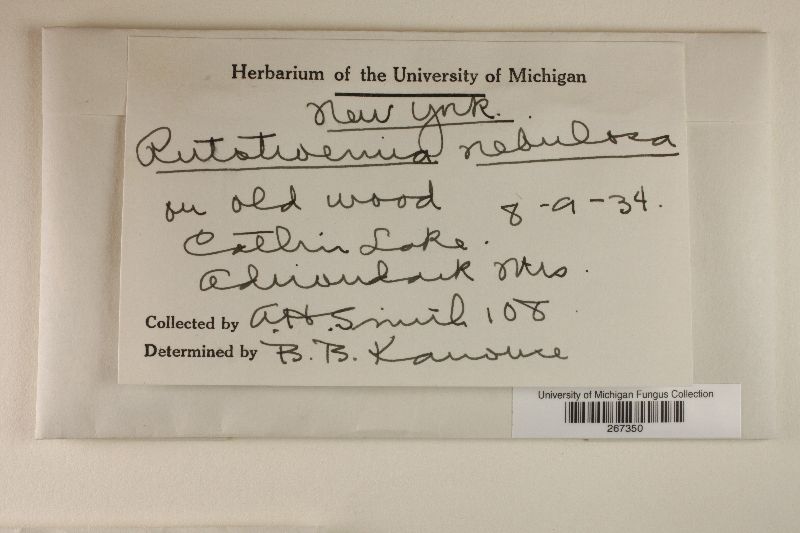 Herbarium of the University of Michigan
New York.
Rutstroemia nebulosa
on old wood 8-9-34.
Catlin Lake.
Adirondack Mts.
Collected by A.H. Smith 108
Determined by B.B. Kanouse
University of Michigan Fungus Collection
267350